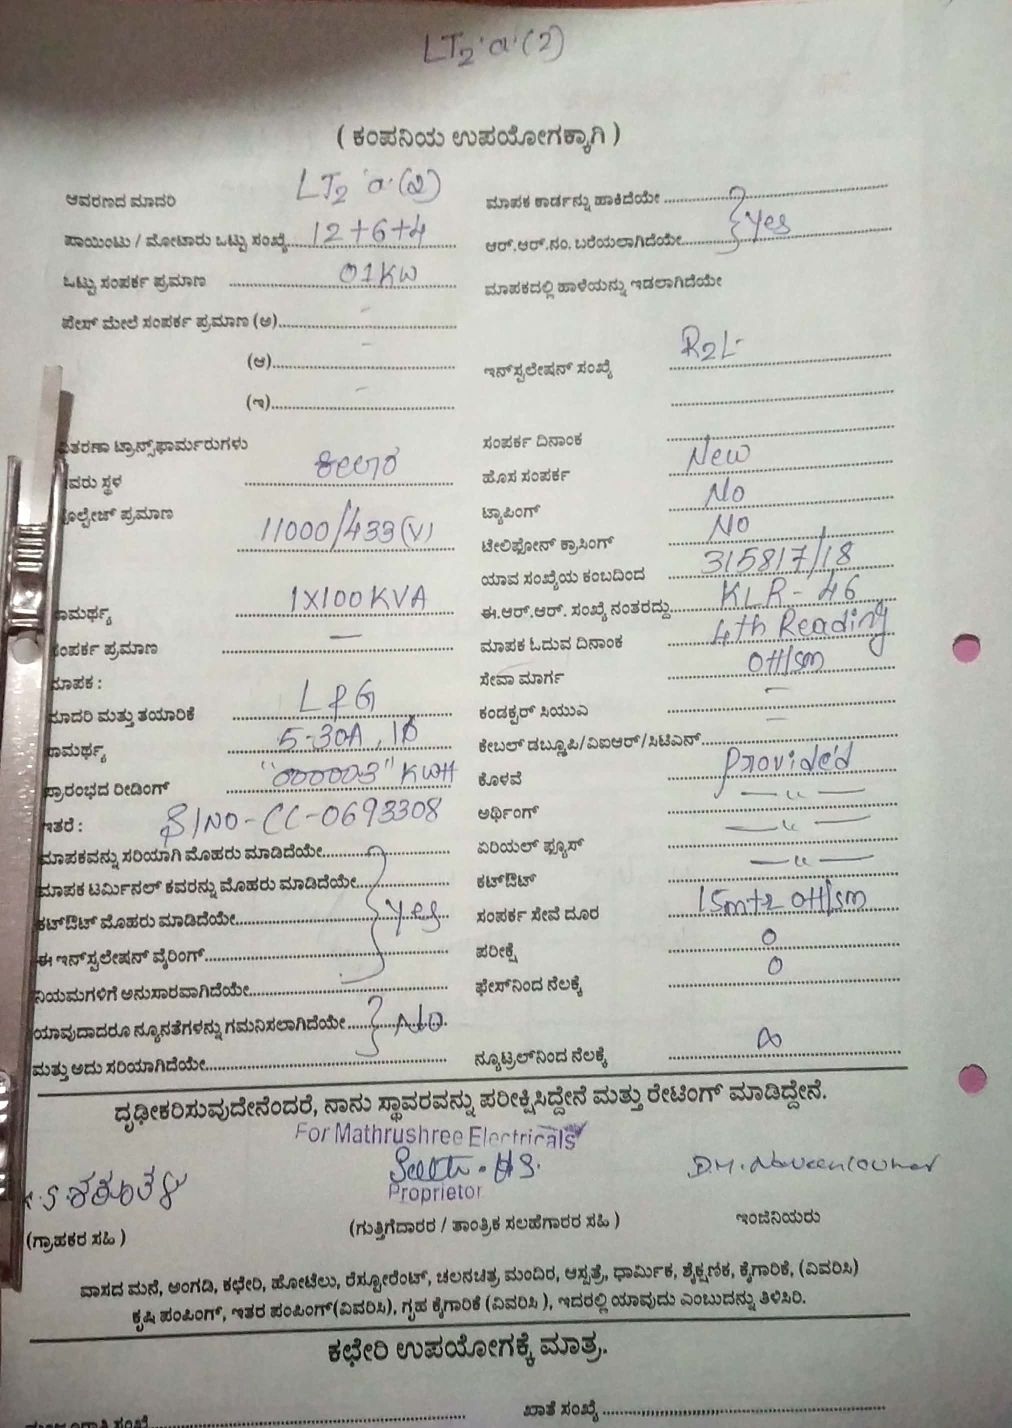 LT2·a·(2)
( ಕಂಪನಿಯ ಉಪಯೋಗಕ್ಕಾಗಿ )
ಆವರಣದ ಮಾದರಿ LT2 a·(2)
ಪಾಯಿಂಟು / ಮೋಟಾರು ಒಟ್ಟು ಸಂಖ್ಯೆ 12+6+4
ಒಟ್ಟು ಸಂಪರ್ಕ ಪ್ರಮಾಣ 01KW
ಪೇಸ್ ಮೇಲೆ ಸಂಪರ್ಕ ಪ್ರಮಾಣ (ಅ) -
(ಆ) -
(ಇ) -
ವಿತರಣಾ ಟ್ರಾನ್ಸ್‌ಫಾರ್ಮರುಗಳು
ವರು ಸ್ಥಳ
ವೋಲ್ಟೇಜ್ ಪ್ರಮಾಣ 11000/433(V)
ಸಾಮರ್ಥ್ಯ 1X100KVA
ಸಂಪರ್ಕ ಪ್ರಮಾಣ —
ಮಾಪಕ :
ಮಾದರಿ ಮತ್ತು ತಯಾರಿಕೆ L&G
ಸಾಮರ್ಥ್ಯ 5-30A, 1Φ
ಪ್ರಾರಂಭದ ರೀಡಿಂಗ್ "000003" KWH
ಇತರೆ : S/NO-CC-0693308
ಮಾಪಕವನ್ನು ಸರಿಯಾಗಿ ಮೊಹರು ಮಾಡಿದೆಯೇ
ಮಾಪಕ ಟರ್ಮಿನಲ್ ಕವರನ್ನು ಮೊಹರು ಮಾಡಿದೆಯೇ
ಕಟ್‌ಔಟ್ ಮೊಹರು ಮಾಡಿದೆಯೇ } Yes
ಈ ಇನ್‌ಸ್ಟಲೇಷನ್ ವೈರಿಂಗ್
ನಿಯಮಗಳಿಗೆ ಅನುಸಾರವಾಗಿದೆಯೇ
ಯಾವುದಾದರೂ ನ್ಯೂನತೆಗಳನ್ನು ಗಮನಿಸಲಾಗಿದೆಯೇ } No
ಮತ್ತು ಅದು ಸರಿಯಾಗಿದೆಯೇ
ಮಾಪಕ ಕಾರ್ಡನ್ನು ಹಾಕಿದೆಯೇ
ಆರ್.ಆರ್.ನಂ. ಬರೆಯಲಾಗಿದೆಯೇ } Yes
ಮಾಪಕದಲ್ಲಿ ಹಾಳೆಯನ್ನು ಇಡಲಾಗಿದೆಯೇ
ಇನ್‌ಸ್ಟಲೇಷನ್ ಸಂಖ್ಯೆ R2L·
ಸಂಪರ್ಕ ದಿನಾಂಕ
ಹೊಸ ಸಂಪರ್ಕ New
ಟ್ಯಾಪಿಂಗ್ No
ಟೇಲಿಫೋನ್ ಕ್ರಾಸಿಂಗ್ No
ಯಾವ ಸಂಖ್ಯೆಯ ಕಂಬದಿಂದ 315817/18
ಈ.ಆರ್.ಆರ್. ಸಂಖ್ಯೆ ನಂತರದ್ದು KLR-46
ಮಾಪಕ ಓದುವ ದಿನಾಂಕ 4th Reading
ಸೇವಾ ಮಾರ್ಗ OH/sm
ಕಂಡಕ್ಟರ್ ಸಿಯುಎ -
ಕೇಬಲ್ ಡಬ್ಲ್ಯೂಪಿ/ವಿಐಆರ್/ಸಿಟಿಎಸ್ -
ಕೊಳವೆ Provided
ಅರ್ಥಿಂಗ್ —"—
ಏರಿಯಲ್ ಫ್ಯೂಸ್ —"—
ಕಟ್‌ಔಟ್ —"—
ಸಂಪರ್ಕ ಸೇವೆ ದೂರ 15mtr OH/sm
ಪರೀಕ್ಷೆ 0
ಫೇಸ್‌ನಿಂದ ನೆಲಕ್ಕೆ 0
ನ್ಯೂಟ್ರಲ್‌ನಿಂದ ನೆಲಕ್ಕೆ ∞
ದೃಢೀಕರಿಸುವುದೇನೆಂದರೆ, ನಾನು ಸ್ಥಾವರವನ್ನು ಪರೀಕ್ಷಿಸಿದ್ದೇನೆ ಮತ್ತು ರೇಟಿಂಗ್ ಮಾಡಿದ್ದೇನೆ.
For Mathrushree Electricals
D.M. Naveenkumar
Proprietor
(ಗ್ರಾಹಕರ ಸಹಿ ) (ಗುತ್ತಿಗೆದಾರರ / ತಾಂತ್ರಿಕ ಸಲಹೆಗಾರರ ಸಹಿ ) ಇಂಜಿನಿಯರು
ವಾಸದ ಮನೆ, ಅಂಗಡಿ, ಕಛೇರಿ, ಹೋಟೆಲು, ರೆಸ್ಟೋರೆಂಟ್, ಚಲನಚಿತ್ರ ಮಂದಿರ, ಆಸ್ಪತ್ರೆ, ಧಾರ್ಮಿಕ, ಶೈಕ್ಷಣಿಕ, ಕೈಗಾರಿಕೆ, (ವಿವರಿಸಿ)
ಕೃಷಿ ಪಂಪಿಂಗ್, ಇತರ ಪಂಪಿಂಗ್(ವಿವರಿಸಿ), ಗೃಹ ಕೈಗಾರಿಕೆ (ವಿವರಿಸಿ ), ಇದರಲ್ಲಿ ಯಾವುದು ಎಂಬುದನ್ನು ತಿಳಿಸಿರಿ.
ಕಛೇರಿ ಉಪಯೋಗಕ್ಕೆ ಮಾತ್ರ.
ಖಾತೆ ಸಂಖ್ಯೆ